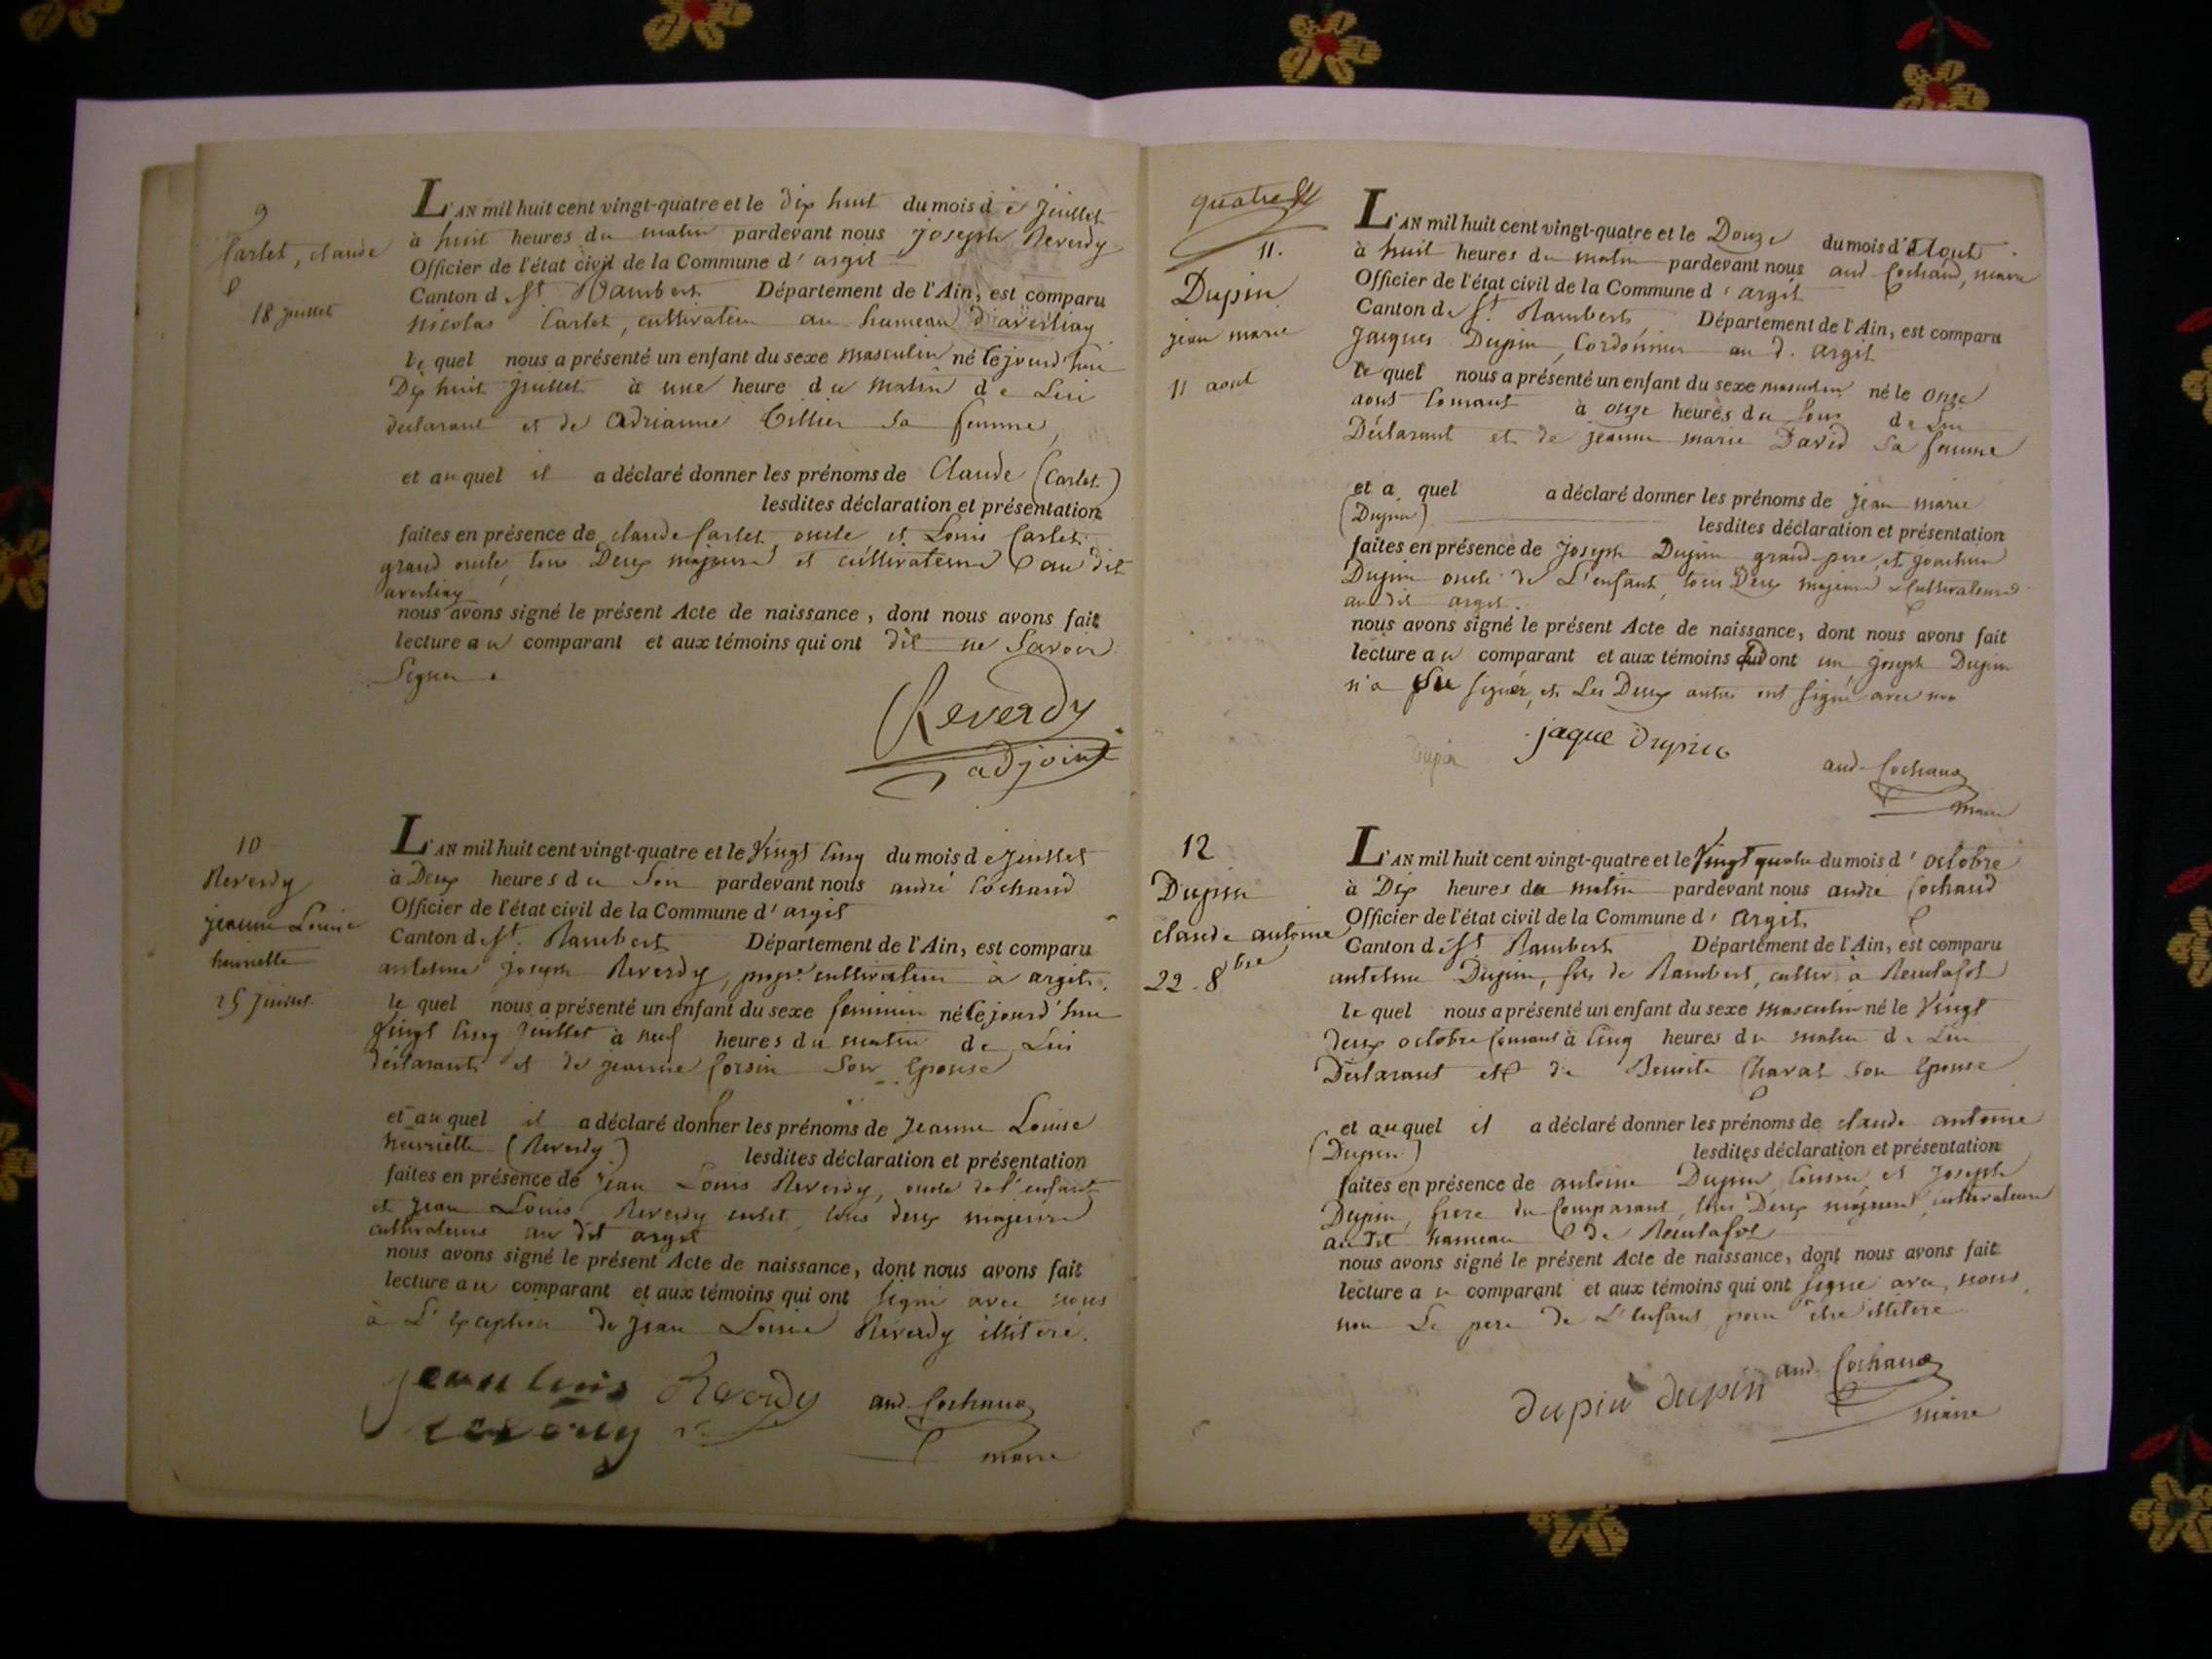 9
Carlet, claude
18 juillet
L'AN mil huit cent vingt-quatre et le dix huit du mois de juillet
à huit heures du matin pardevant nous joseph Reverdy
Officier de l'état civil de la Commune d'argis
Canton de St Rambert Département de l'Ain, est comparu
nicolas Carlet, cultivateur au hameau d'averliay
le quel nous a présenté un enfant du sexe masculin né cejourd'hui
Dix huit juillet à une heure du matin de Lui
declarant et de adrianne Tillier sa femme,
et au quel il a déclaré donner les prénoms de Claude (Carlet)
lesdites déclaration et présentation
faites en présence de claude Carlet oncle, et Louis Carlet
grand oncle, tous Deux majeurs et cultivateurs au dit
averliay
nous avons signé le présent Acte de naissance, dont nous avons fait
lecture au comparant et aux témoins qui ont dit ne savoir
Signer.
Reverdy
adjoint
10
Reverdy
jeanne Louise
henriette
25 juillet
L'AN mil huit cent vingt-quatre et le Vingt Cinq du mois de juillet
à Deux heures du Soir pardevant nous andré Cochand
Officier de l'état civil de la Commune d'argis
Canton de St. Rambert Département de l'Ain, est comparu
antelme joseph Reverdy, propre. cultivateur à argis.
le quel nous a présenté un enfant du sexe feminin né cejourd'hui
Vingt Cinq Juillet à neuf heures du matin de Lui
déclarant et de jeanne Corsin Son Epouse
et au quel il a déclaré donner les prénoms de Jeanne Louise
henriette (Reverdy) lesdites déclaration et présentation
faites en présence de Jean Louis Reverdy, oncle de l'enfant
et Jean Louis Reverdy cadet, tous deux majeurs
cultivateurs au dit argis
nous avons signé le présent Acte de naissance, dont nous avons fait
lecture au comparant et aux témoins qui ont signé avec nous
à L'Exception de Jean Louis Reverdy illiteré.
jean luis Reverdy and. Cochand
reverdy maire
quatre
11.
Dupin
jean marie
11 aout
L'AN mil huit cent vingt-quatre et le Douze du mois d'Aout
à huit heures du matin pardevant nous and. Cochand, maire
Officier de l'état civil de la Commune d'argis
Canton de St. Rambert, Département de l'Ain, est comparu
Jacques Dupin, Cordonnier au d. argis
le quel nous a présenté un enfant du sexe masculin né le onze
aout Courant à onze heures du Soir de Lui
Déclarant et de jeanne marie David sa femme
et a quel a déclaré donner les prénoms de jean marie
(Dupin) lesdites déclaration et présentation
faites en présence de Joseph Dupin grand pere, et joachim
Dupin oncle de L'enfant, tous Deux majeurs Cultivateurs
au dit argis.
nous avons signé le présent Acte de naissance, dont nous avons fait
lecture au comparant et aux témoins dont un, joseph Dupin
n'a Su signer, et Les Deux autres ont signé avec nous
dupin jaque dupin and. Cochand
maire
12
Dupin
claude antoine
22. 8bre
L'AN mil huit cent vingt-quatre et le Vingt quatre du mois d'octobre
à Dix heures du matin pardevant nous andré Cochand
Officier de l'état civil de la Commune d'argis
Canton de St Rambert Département de l'Ain, est comparu
antelme Dupin, fils de Rambert, cultiv. à Reculafol
le quel nous a présenté un enfant du sexe masculin né le Vingt
deux octobre Courant à Cinq heures du matin de Lui
Déclarant et de Benoite Charat son Epouse
et au quel il a déclaré donner les prénoms de claude antoine
(Dupin) lesdites déclaration et présentation
faites en présence de antoine Dupin Cousin et Joseph
Dupin, frere du Comparant, tous Deux majeurs cultivateurs
au dit hameau de Reculafol
nous avons signé le présent Acte de naissance, dont nous avons fait
lecture au comparant et aux témoins qui ont signé avec nous,
non Le pere de L'enfant pour être illitere
dupin dupin and. Cochand
maire